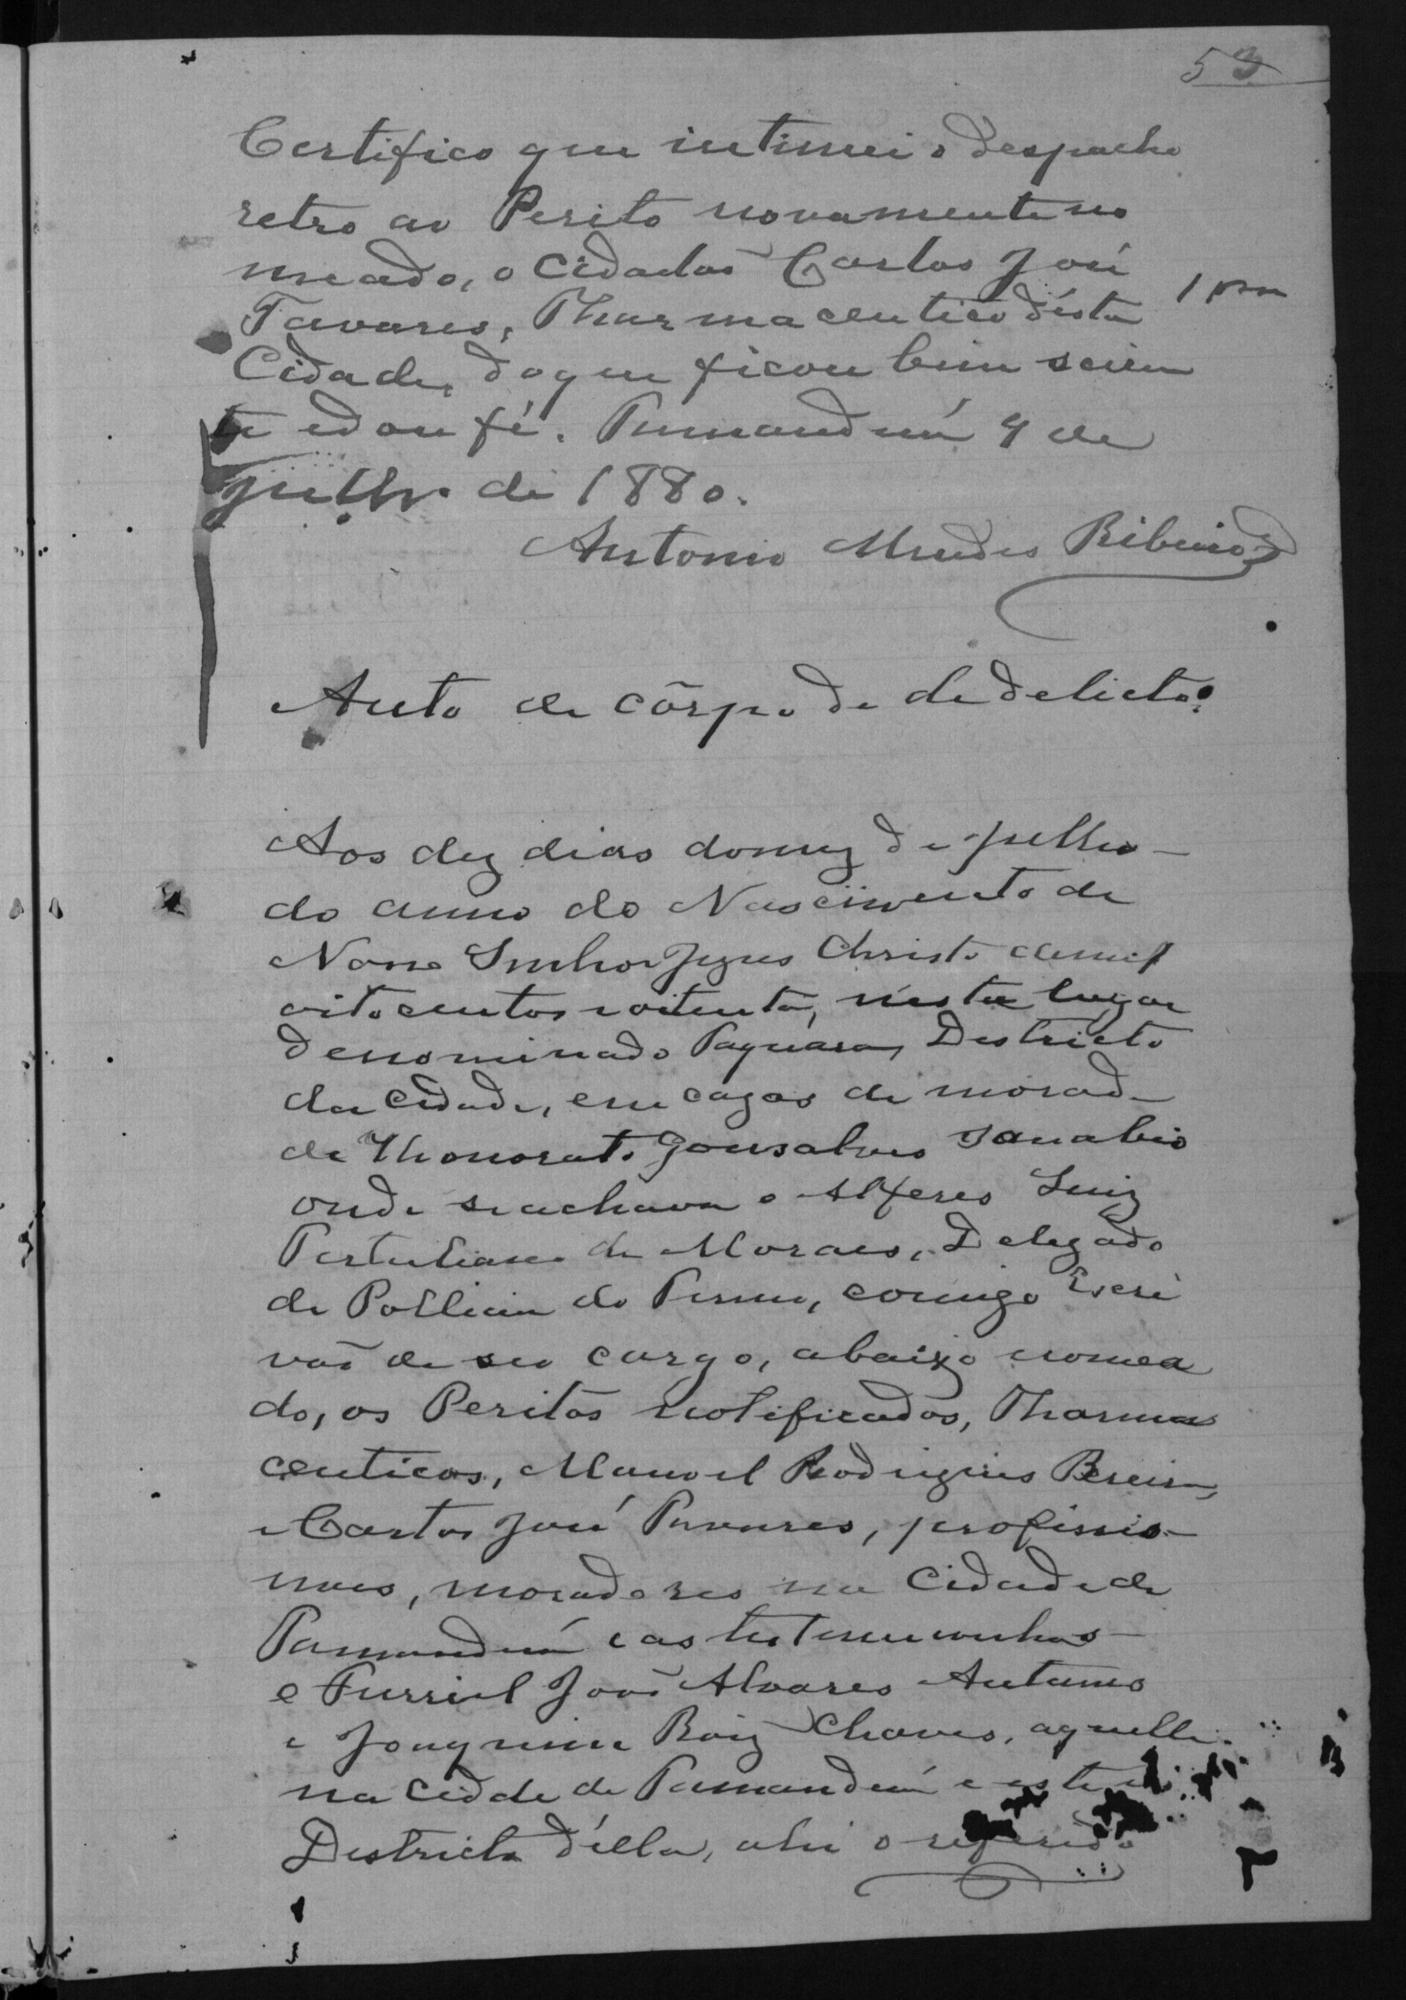 53
Certifico que intimei o despacho
retro ao Perito novamente no
meado, o Cidadaõ Carlos José
Tavares, Pharmaceutico désta
Cidade, doque ficou bem scien
te edou fé. Tamanduá 9 de
Julho de 1880.
Antonio Mendes Ribeiro
Auto de côrpo de de delicto.
Aos dez dias domez de Julho
do anno do Nascimento de
Nosso Senhor Jezus Christo demil
oito centos e oitenta, néste lugar
denominado Districto
da Cidade, em cazas de morad
de Honorato Gonsalves
onde seachava o Alferes Luiz
Pertuliano de Moraes, Delegado
de Pollicia do Termo, comigo Escri
vaõ de seo cargo, abaixo nomea
do, os Peritos notificados, Pharma
ceuticos, Manoel Rodrigues Pereira,
e Carlos José Tavares, profissio
naes, moradores na Cidade de
Tamanduá e as testemunhas
o Furriel Joaõ Alvares Antunes
e Joaquim Roiz Chaves, aquelle
na Cidde de Tamanduá e este
Districto délla, ahi o referido